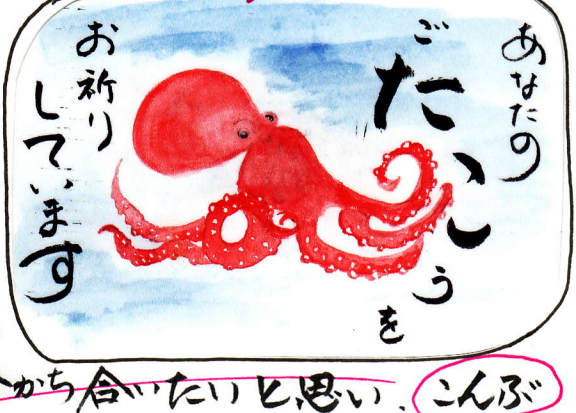 あなたの
ごたこうを
お祈り
しています
かち合いたいと思い、こんぶ